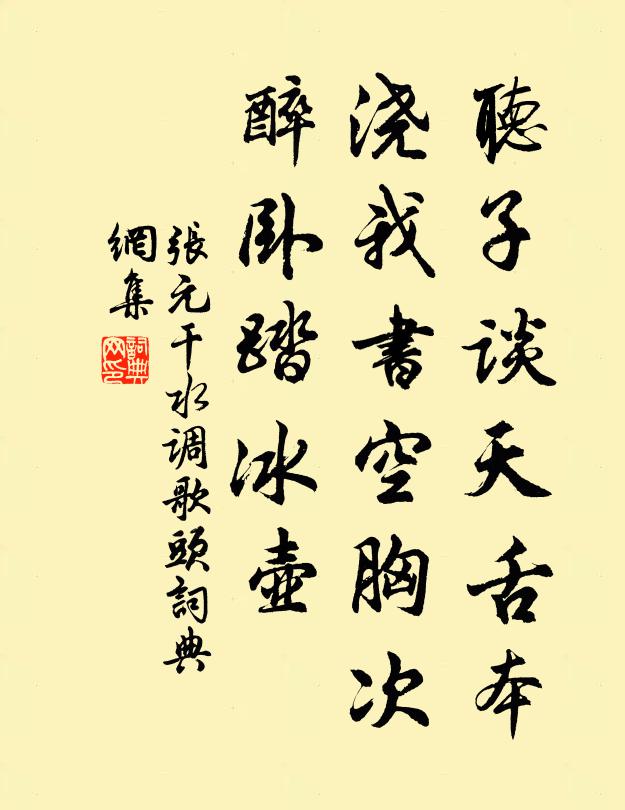 聽子談天舌本
澆我書空胸次
醉卧踏冰壺
張元干水調歌頭詞典
網集
詞典網印